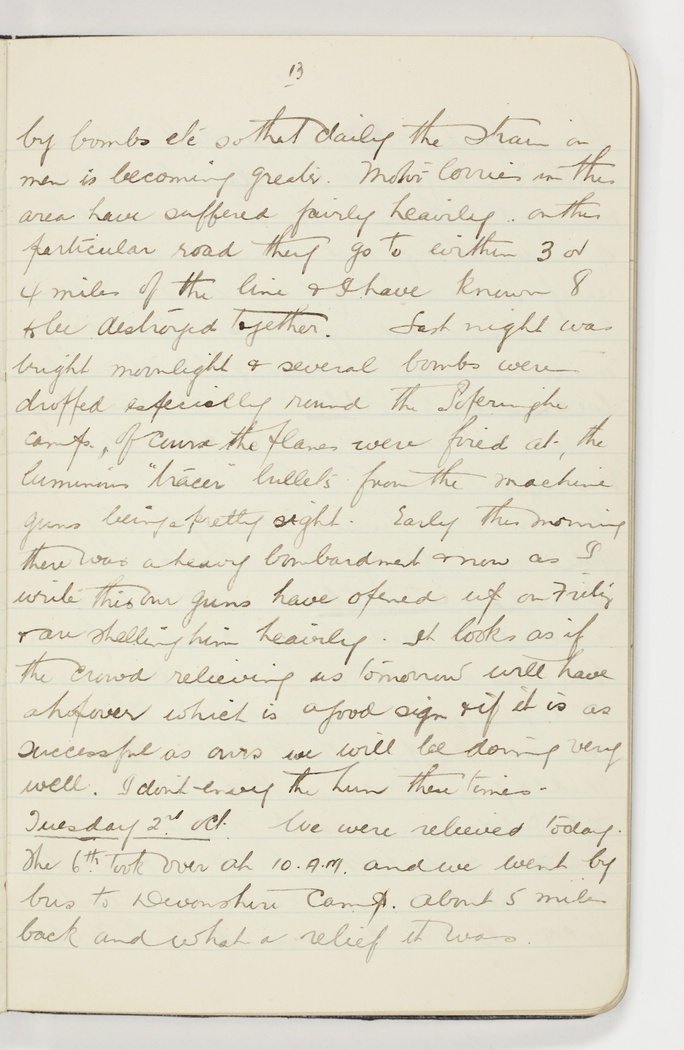 13
by bombs etc so that daily the strain on
men is becoming greater. Motor lorries in this
area have suffered fairly heavily. on this
particular road they go to within 3 or
4 miles of the line & I have known 8
to be destroyed together. Last night was
bright moonlight & several bombs were
dropped especially round the Poperinghe
camps, of course the planes were fired at, the
luminous "tracer" bullets from the machine
guns being a pretty sight. Early this morning
there was a heavy bombardment & now as I
write this our guns have opened up on Fritz
& are shelling him heavily. It looks as if
the crowd relieving us tomorrow will have
a hopover which is a good sign & if it is as
successful as ours we will be doing very
well. I dont envy the hun these times.
Tuesday 2nd Oct. We were relieved today.
The 6th took over at 10.A.M. and we went by
bus to Devonshire Camp. about 5 miles
back and what a relief it was.